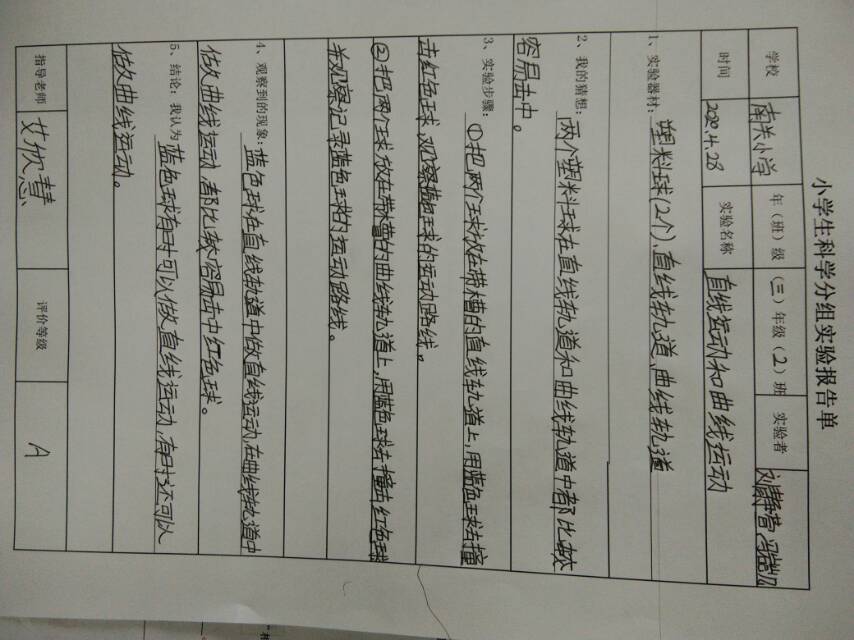 小学生科学分组实验报告单
学校 南关小学 年（班）级 （三）年级（2）班 实验者
时间 2020.4.28 实验名称 直线运动和曲线运动
1、实验器材：塑料球(2个)、直线轨道、曲线轨道
2、我的猜想：两个塑料球在直线轨道和曲线轨道中都比较
容易击中。
3、实验步骤：①把两个球放在带槽的直线轨道上，用蓝色球去撞
击红色球，观察蓝色球的运动路线。
②把两个球放在带槽的曲线轨道上，用蓝色球去撞击红色球
并观察记录蓝色球的运动路线。
4、观察到的现象：蓝色球在直线轨道中做直线运动，在曲线轨道中
做曲线运动，都比较容易击中红色球。
5、结论：我认为 蓝色球有时可以做直线运动，有时还可以
做曲线运动。
指导老师 艾欣慧 评价等级 A